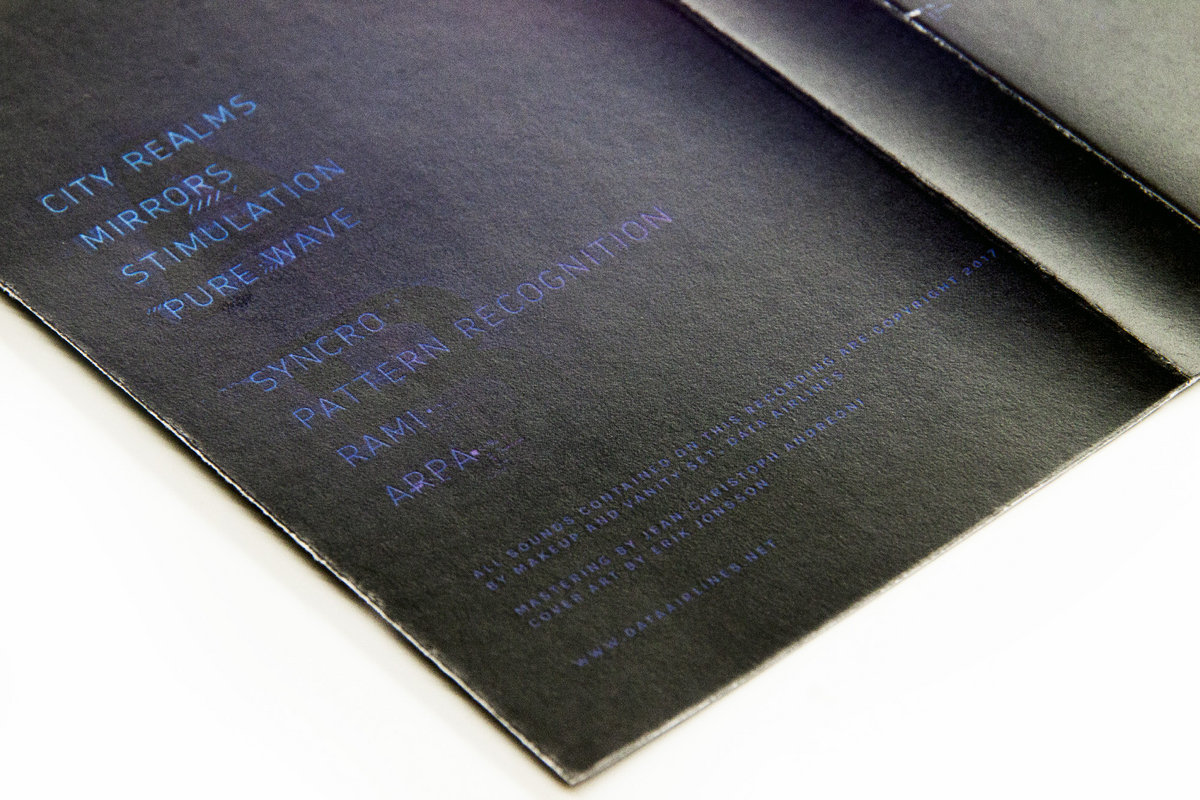 CITY REALMS
MIRRORS
STIMULATION
PURE WAVE
SYNCRO
PATTERN RECOGNITION
RAMI
ARPA
ALL SOUNDS CONTAINED ON THIS RECORDING ARE COPYRIGHT 2017
BY MAKEUP AND VANITY SET, DATA AIRLINES
MASTERING BY JEAN-CHRISTOPH ANDREONI
COVER ART BY ERIK JONSSON
WWW.DATAAIRLINES.NET